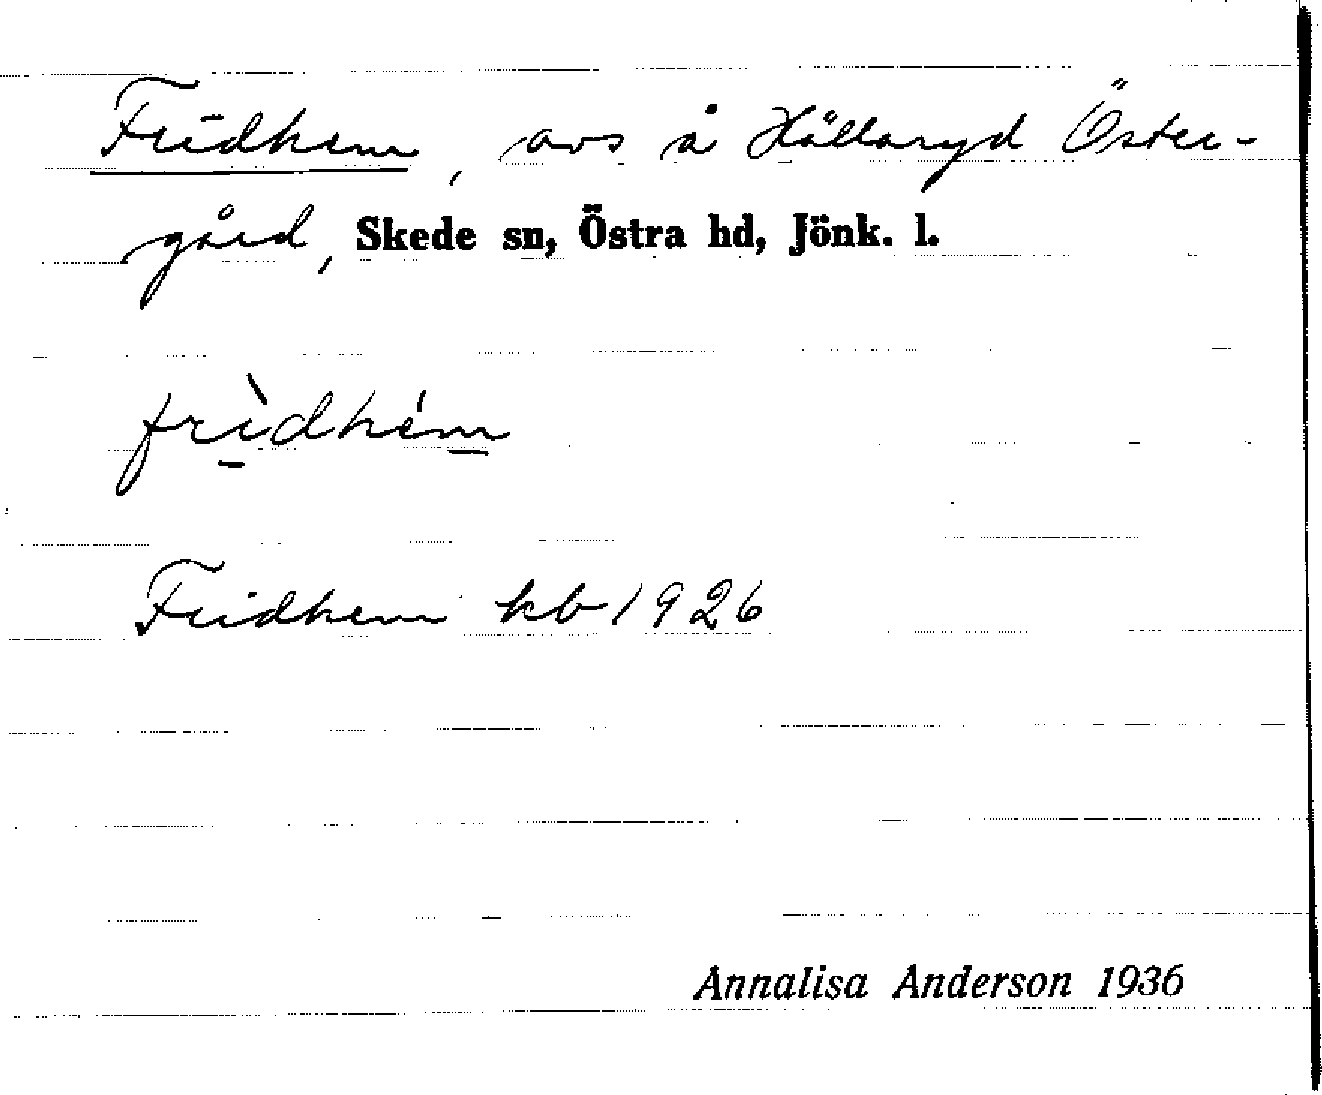 Fridhem, avs å Hållaryd Öster-
gård, Skede sn, Östra hd, Jönk. l.
frìdhém
Fridhem kb 1926
Annalisa Anderson 1936